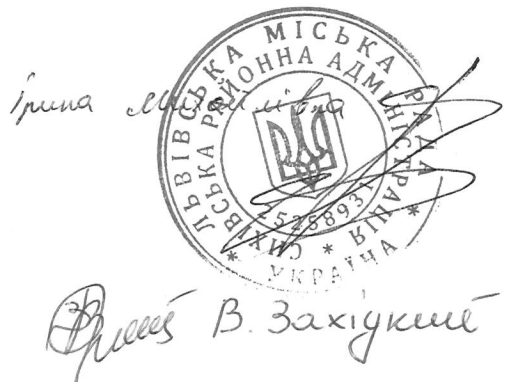 Ірина Михайлівна
ЛЬВІВСЬКА МІСЬКА РАДА
СИХІВСЬКА РАЙОННА АДМІНІСТРАЦІЯ
25258931
* УКРАЇНА *
В. Західкий